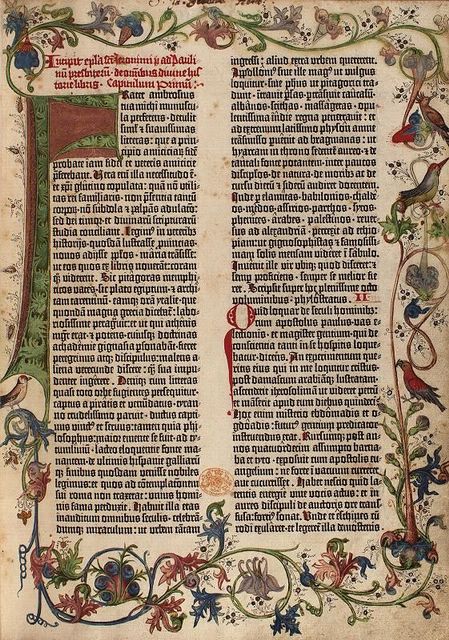 Incipit epl̃a sancti iheronimi ad pauli-
nũ presbiterũ de omĩbus divine his-
torie libris. Capitulũ primũ.
Frater ambrosius
tua michi munuscula
perferens. detulit
sil̃ et suauissimas
litteras: que a prin-
cipio amiciciaꝝ fidẽ
probate iam fidei et veteris amicicie
Vera eni illa necessitudo ẽ.
et xp̃i glutino copulata: quã nõ utili-
tas rei familiaris. nõ pñtia tantũ
corporũ. nõ subdola et palpãs adulacõ:
sed dei timor. et diuinaꝝ scripturarũ
studia conciliant. Legimꝰ in veteribꝫ
historijs. quosdã lustrasse ꝓuincias.
nouos adisse ppl̃os. maria trãsisse:
ut eos quos ex libris nouerãt: coram
qꝫ viderẽt. Sic pitagoras memphi-
ticos vates. sic plato egiptũ. et archi-
tam tarentinũ. eamqꝫ orã ytalie. que
quondã magna grecia diceba͡t: labo-
riosissime peragrauit
erat. et potens. cuiusqꝫ doctrinas
achademie gignasia ꝑsonabãt. fieret
peregrinus atqꝫ discipulus. malens a-
liena verecunde discere: qꝫ̃ sua impu-
denter ingerere. Deniqꝫ cum litteras
quasi toto orbe fugientes persequitur.
captus a piratis et venundatus. tiran-
no crudelissimo paruit. ductus capti-
uus vinctꝰ et seruus: tamen quia phi-
losophus: maior emente se fuit. ad ty-
tum liuiũ. lacteo eloquentie fonte ma-
nantem. de ultimis hispanie galliarũqꝫ
finibus quosdam venisse nobiles
legimus: et quos ad cõtemplacõem
sui roma non traxerat: unius homi-
nis fama perduxit. Habuit illa etas
inauditum omnibus seculis. celebrã-
dumqꝫ miraculum: ut urbem tãtam
ingressi: aliud extra urbem quererent.
Apollonius siue ille magꝰ ut vulgus
loquitur. siue phus ut pitagorici tra-
dunt. intrauit persas. ꝑtransiuit caucasũ
albanos. scithas. massagetas. opu-
lentissima indie regna penetrauit: et
ad extremum latissimo physon amne
trãsmisso puenit ad bragmanas: ut
hyarcam in throno sedentẽ aureo. et de
tantali fonte potantem. inter paucos
discipl̃os. de natura. de moribꝫ. ac de
cursu dierũ et siderũ audiret docentem.
Inde ꝑ elamitas. babilonios. chalde-
os. medos. assyrios. parthos. syros.
phenices. arabes. palestinos. reuer-
sus ad alexandriã: perrexit ad ethio-
piam: ut gignosophistas et famosissi-
mam solis mensam videret ĩ sabulo.
Inuenit ille vir ubiqꝫ quod disceret: et
semp proficiens. semper se melior fie-
ret. Scripsit super hoc plenissime octo
voluminibus. phylostratus. II.
Quid loquar de seculi hominibꝫ:
cum apostolus paulus. vas e-
lectionis. et magister gentium. qui de
consciencia tanti in se hospitis loque-
batur. dicens. An experimentum que-
ritis eius qui in me loquitur cristus.
post damascum arabiãqꝫ lustratam:
ascenderit iherosolimã ut videret petrũ
et mãserit apud eum diebus quindeci.
Hoc enim misterio ebdomadis et o-
gdoadis: futurꝰ gencium predicator
instruendus erat. Rursumqꝫ post an-
nos quatuordecim assumpto barna-
ba et tyto. exposuit cum apostolis eu-
angelium: ne forte ĩ vacuum curreret
aut cucurrisset. Habet nescio quid la-
tentis energie viue vocis actus: et in
aures discipuli de auctoris ore trans-
fusa: forciꝰ sonat. Unde et eschines cũ
rodi exularet. et legeret̃ illa demostenis